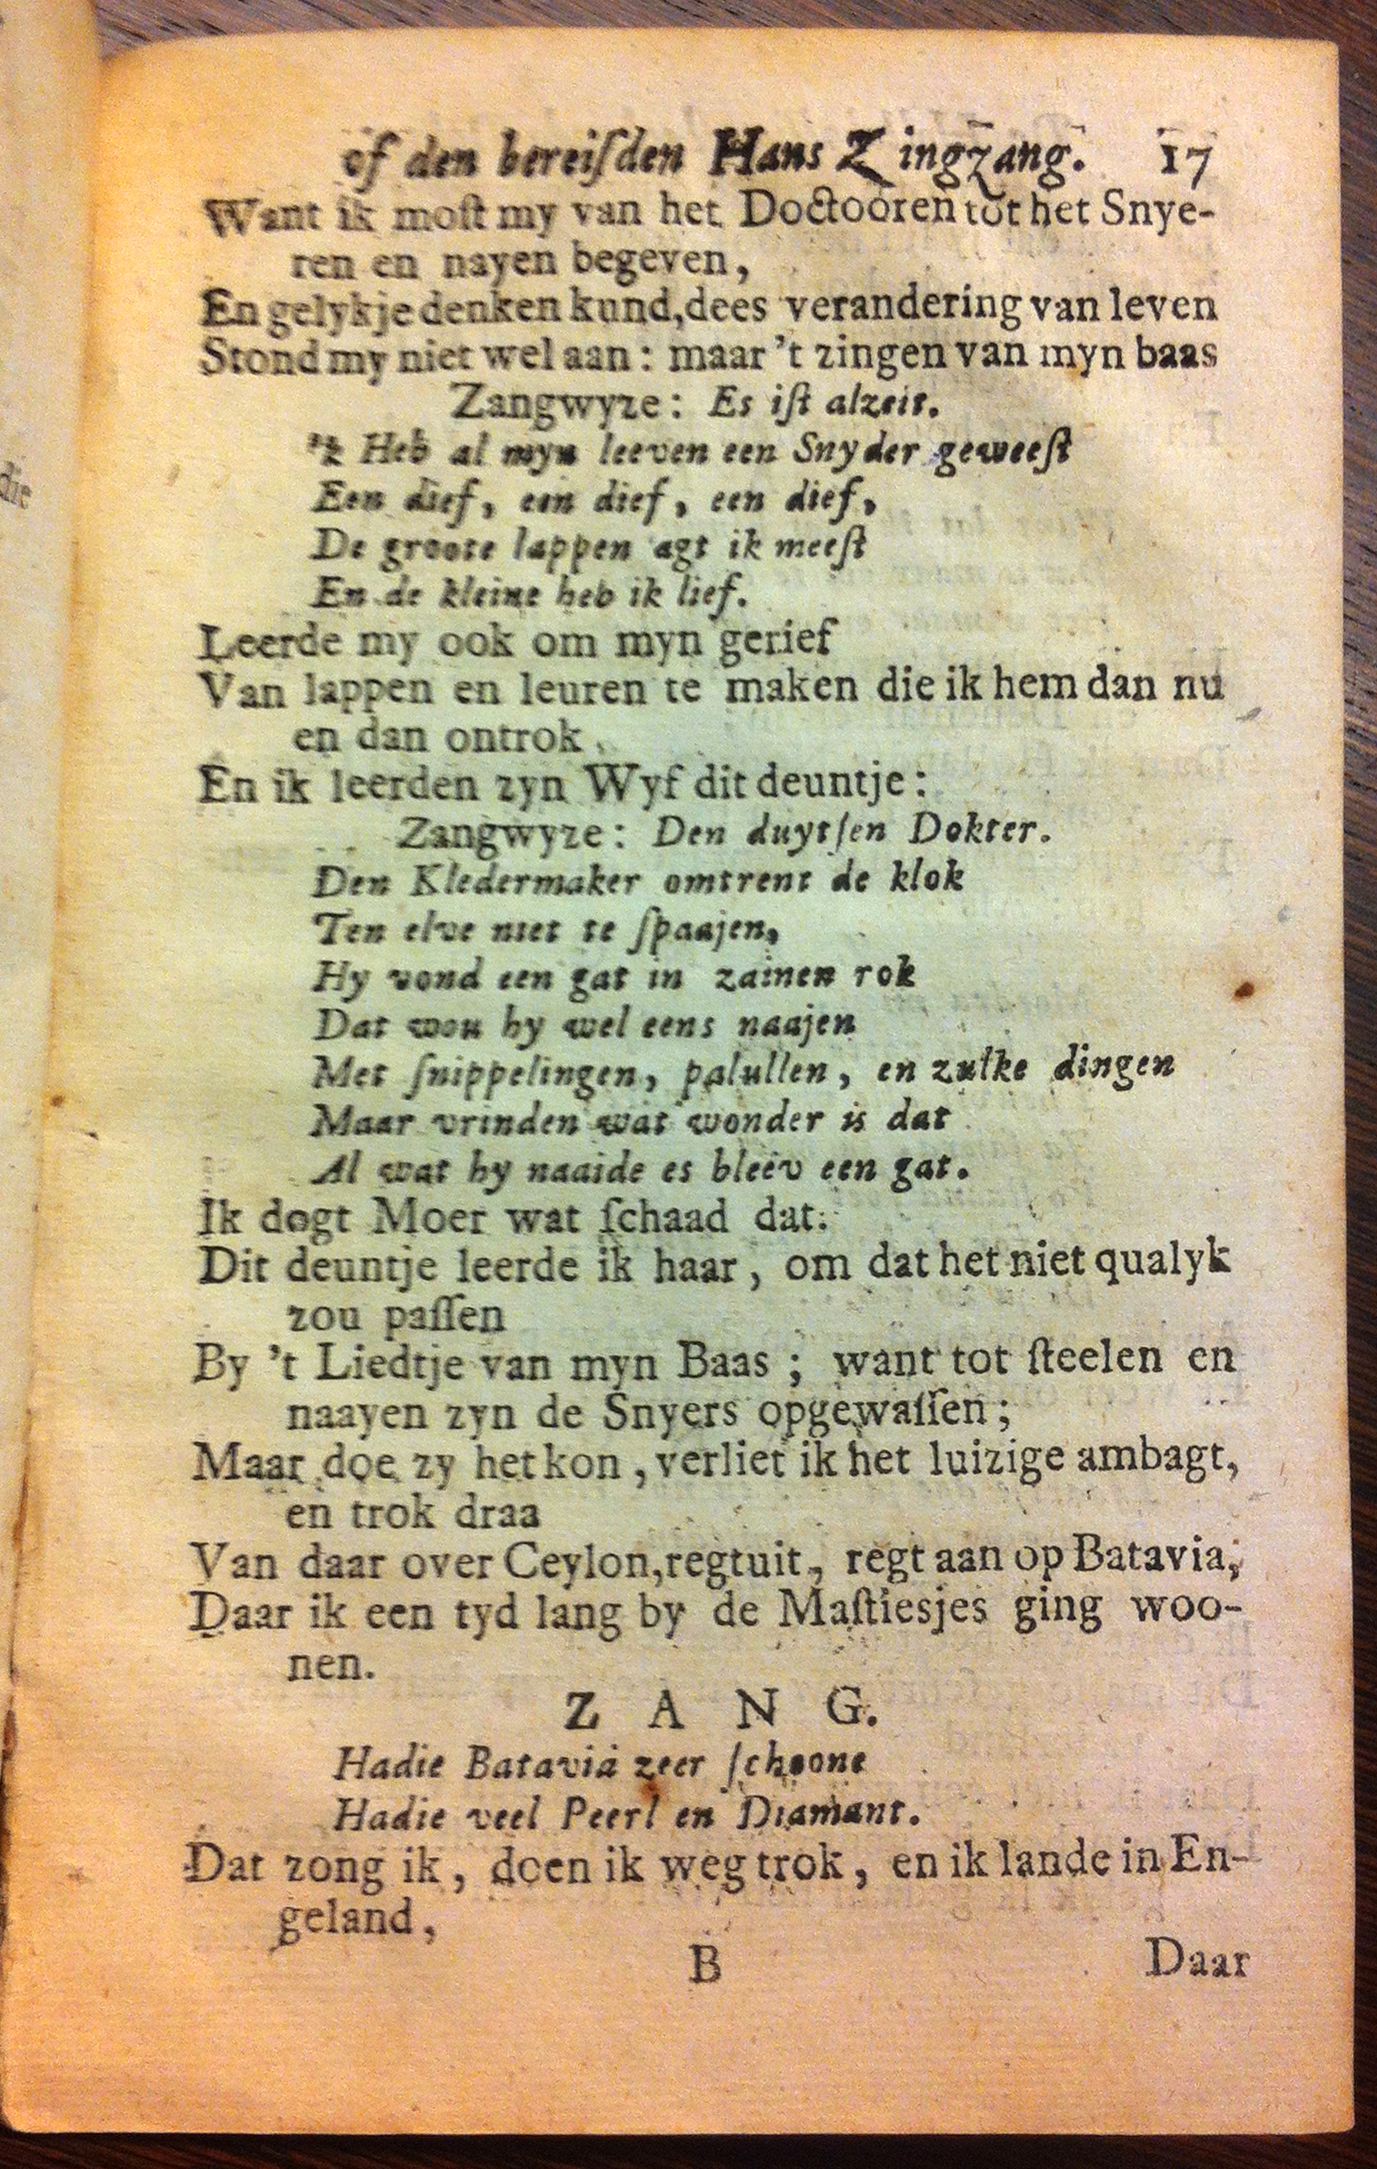 of den bereiſden Hans Zingzang. 17
Want ik moſt my van het Doctooren tot het Snye-
ren en nayen begeven,
En gelyk je denken kund, dees verandering van leven
Stond my niet wel aan: maar 't zingen van myn baas
Zangwyze: Es iſt alzeit.
'k Heb al myn leeven een Snyder geweeſt
Een dief, een dief, een dief,
De groote lappen agt ik meeſt
En de kleine heb ik lief.
Leerde my ook om myn gerief
Van lappen en leuren te maken die ik hem dan nu
en dan ontrok
En ik leerden zyn Wyf dit deuntje:
Zangwyze: Den duytſen Dokter.
Den Kledermaker omtrent de klok
Ten elve niet te ſpaajen,
Hy vond een gat in zainen rok
Dat wou hy wel eens naajen
Met ſnippelingen, palullen, en zulke dingen
Maar vrinden wat wonder is dat
Al wat hy naaide es bleev een gat.
Ik dogt Moer wat ſchaad dat.
Dit deuntje leerde ik haar, om dat het niet qualyk
zou paſſen
By 't Liedtje van myn Baas; want tot ſteelen en
naayen zyn de Snyers opgewaſſen;
Maar doe zy het kon, verliet ik het luizige ambagt,
en trok draa
Van daar over Ceylon, regtuit, regt aan op Batavia,
Daar ik een tyd lang by de Maſtiesjes ging woo-
nen.
Z A N G.
Hadie Batavia zeer ſchoone
Hadie veel Peerl en Diamant.
Dat zong ik, doen ik weg trok, en ik lande in En-
geland,
B Daar
die